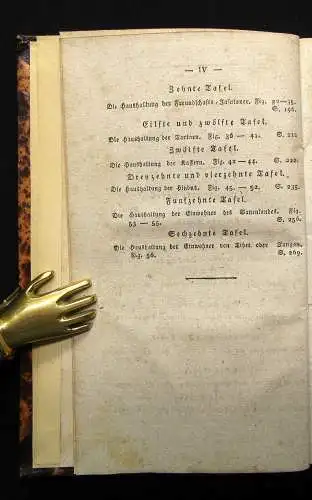 — IV —
Zehnte Tafel.
Die Haushaltung der Freundschafts-Insulaner. Fig. 32—35.
S. 196.
Eilfte und zwölfte Tafel.
Die Haushaltung der Tartarn. Fig. 36 — 41. S. 211
Zwölfte Tafel.
Die Haushaltung der Kaffern. Fig. 42 — 44. S. 222.
Dreyzehnte und vierzehnte Tafel.
Die Haushaltung der Hindus. Fig. 45. — 52. S. 235.
Funfzehnte Tafel.
Die Haushaltung der Einwohner des Fig.
53 — 55. S. 256.
Sechzehnte Tafel.
Die Haushaltung der Einwohner von oder
Fig. 56. S. 269.